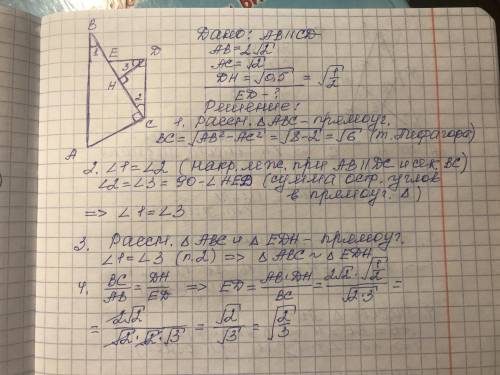 B
1
E
D
3
H
2
C
A
Дано: AB∥CD
AB=2√2
AC=√2
DH=√0,5 = √(1/2)
ED-?
Решение:
1. Рассм. △ABC - прямоуг.
BC=√(AB²-AC²)=√(8-2)=√6 (т. Пифагора)
2. ∠1=∠2 (накр. леж. при AB∥DC и сек. BC)
∠2=∠3=90-∠HED (сумма остр. углов
в прямоуг. △)
=> ∠1=∠3
3. Рассм. △ABC и △EDH - прямоуг.
∠1=∠3 (п.2) => △ABC ~ △EDH
4. BC/AB = DH/ED => ED = AB·DH/BC = 2√2·√(1/2)/√2·3 =
= 2√2/√2·√2·√3 = √2/√3 = √(2/3)